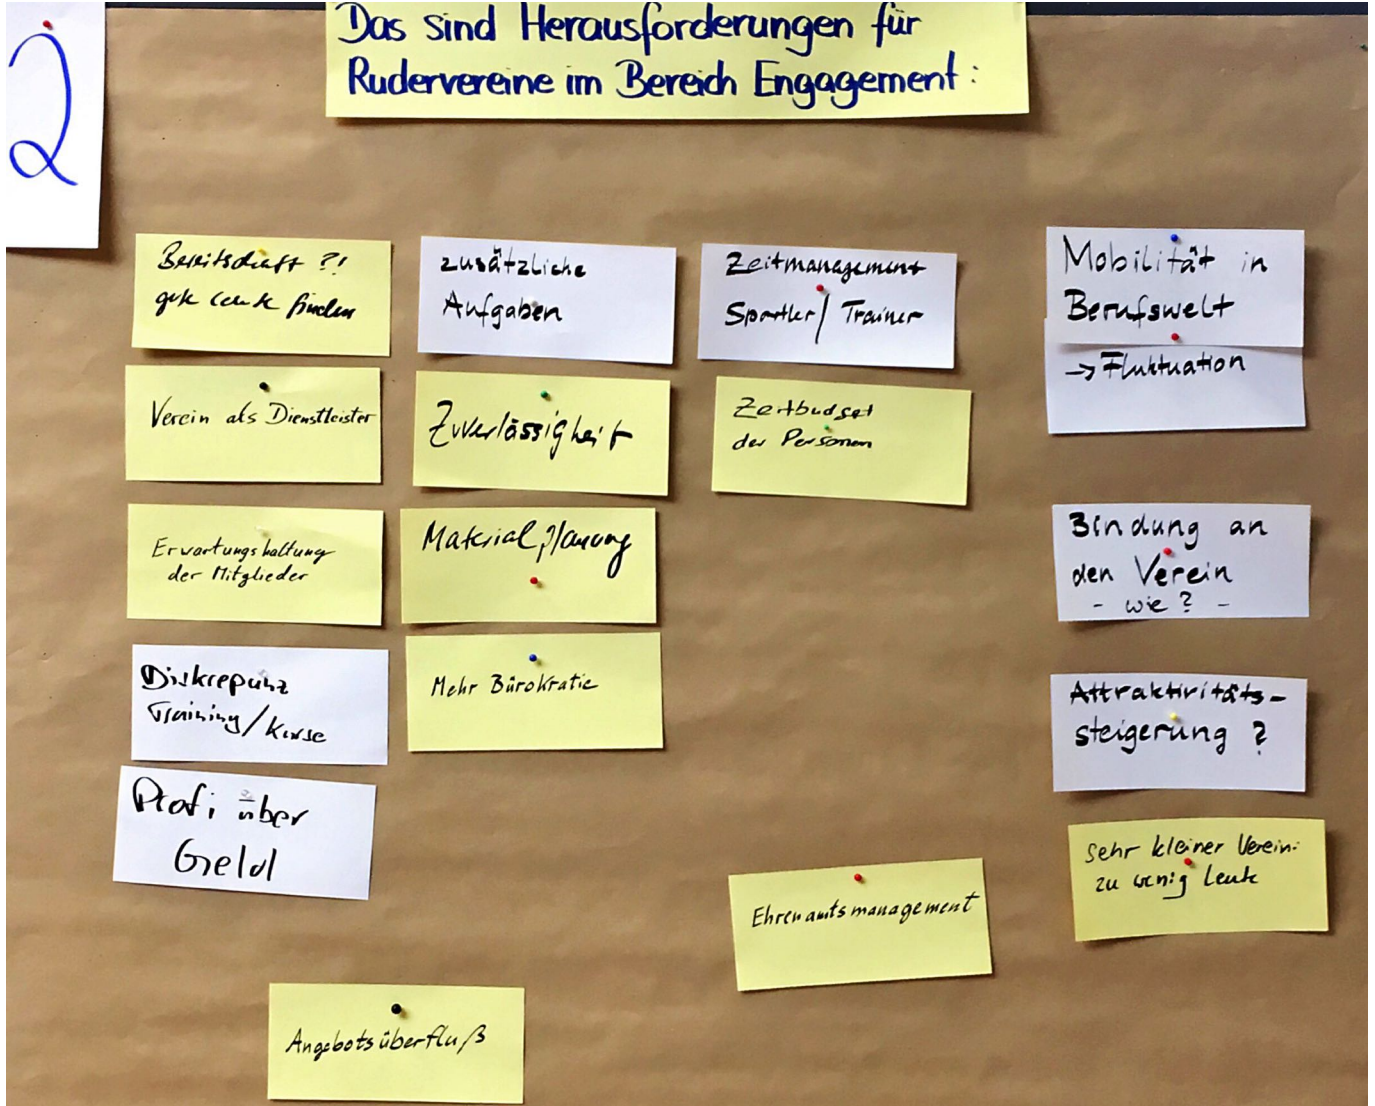 2
Das sind Herausforderungen für
Rudervereine im Bereich Engagement:
Bereitschaft ?!
gute Leute finden
Verein als Dienstleister
Erwartungshaltung
der Mitglieder
Diskrepanz
Training/Kurse
Profi über
Geld
zusätzliche
Aufgaben
Zuverlässigkeit
Materialplanung
Mehr Bürokratie
Zeitmanagement
Sportler/Trainer
Zeitbudget
der Personen
Mobilität in
Berufswelt
→ Fluktuation
Bindung an
den Verein
- wie? -
Attraktivitäts-
steigerung ?
Sehr kleiner Verein:
zu wenig Leute
Ehrenamtsmanagement
Angebotsüberfluß